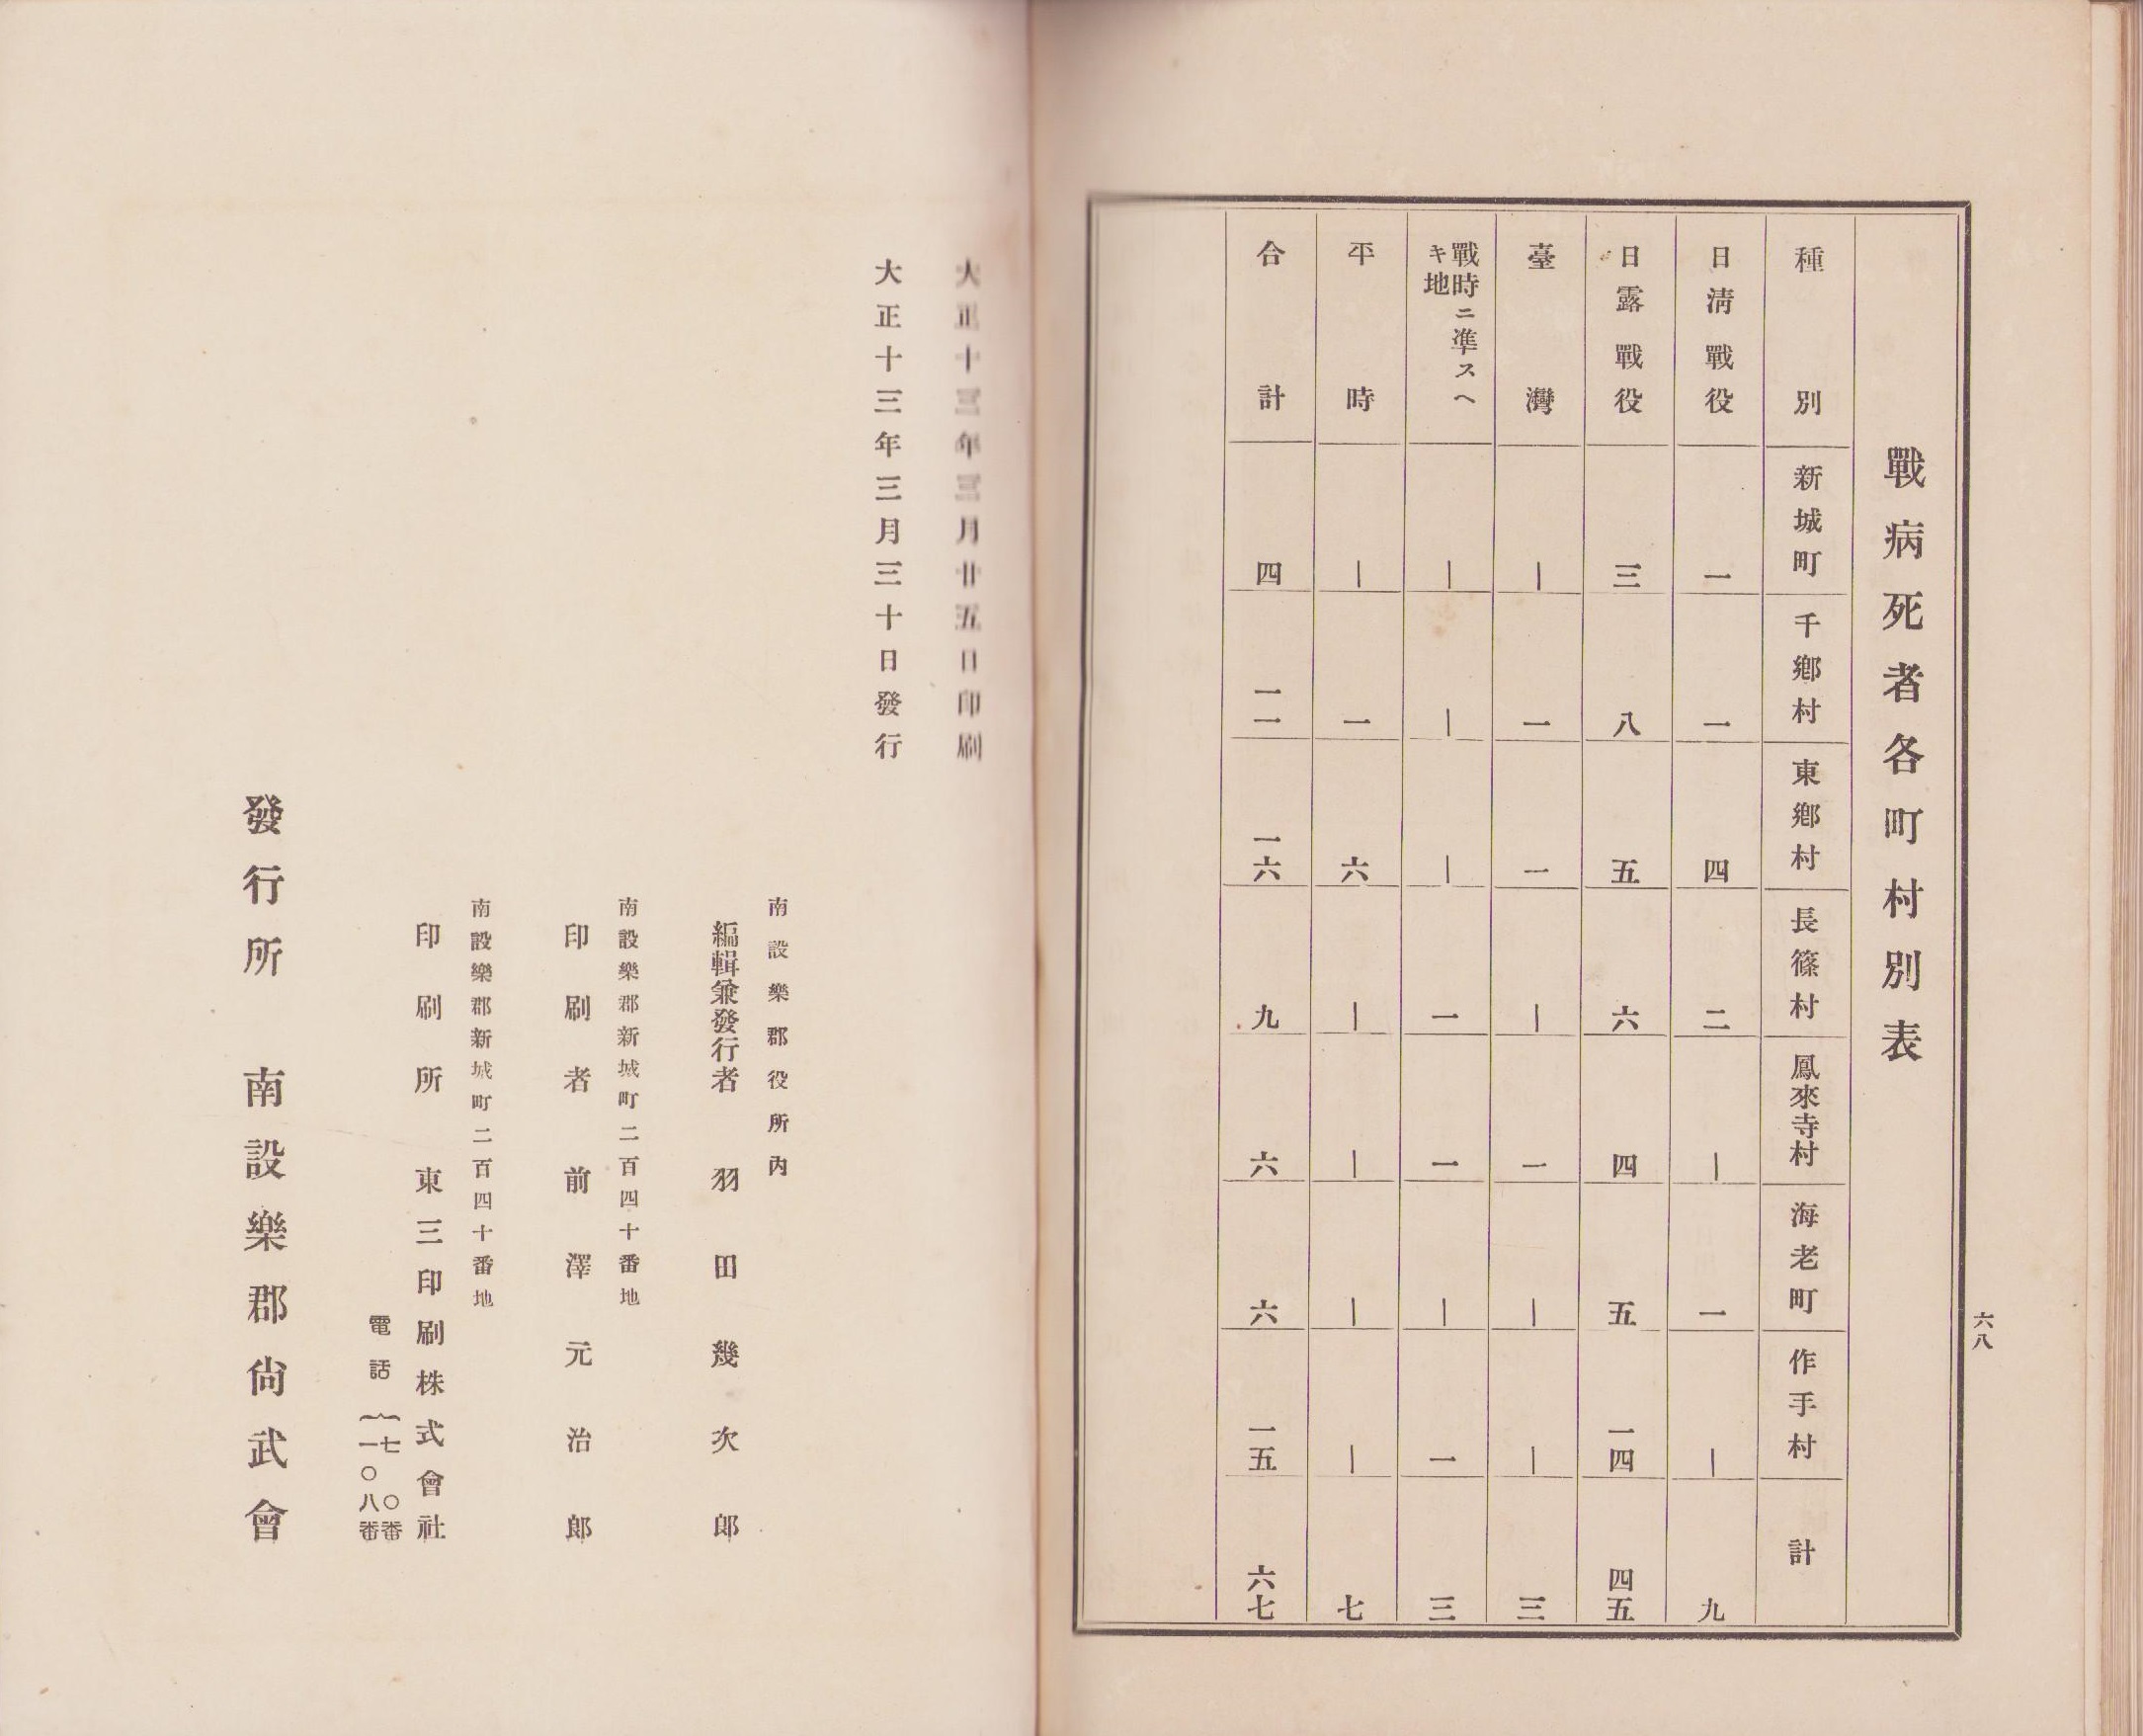 戰病死者各町村別表
種別 新城町 千鄕村 東鄕村 長篠村 鳳來寺村 海老町 作手村 計
日淸戰役 一 一 四 二 ― 一 ― 九
日露戰役 三 八 五 六 四 五 一四 四五
臺灣 ― 一 一 ― 一 ― ― 三
戰時ニ準スヘキ地 ― ― ― 一 一 ― 一 三
平時 ― 一 六 ― ― ― ― 七
合計 四 一一 一六 九 六 六 一五 六七
六八
大正十三年三月廿五日印刷
大正十三年三月三十日發行
南設樂郡役所內
編輯兼發行者 羽田幾次郎
南設樂郡新城町二百四十番地
印刷者 前澤元治郎
南設樂郡新城町二百四十番地
印刷所 東三印刷株式會社
電話{七〇番
一〇八番
發行所 南設樂郡尙武會